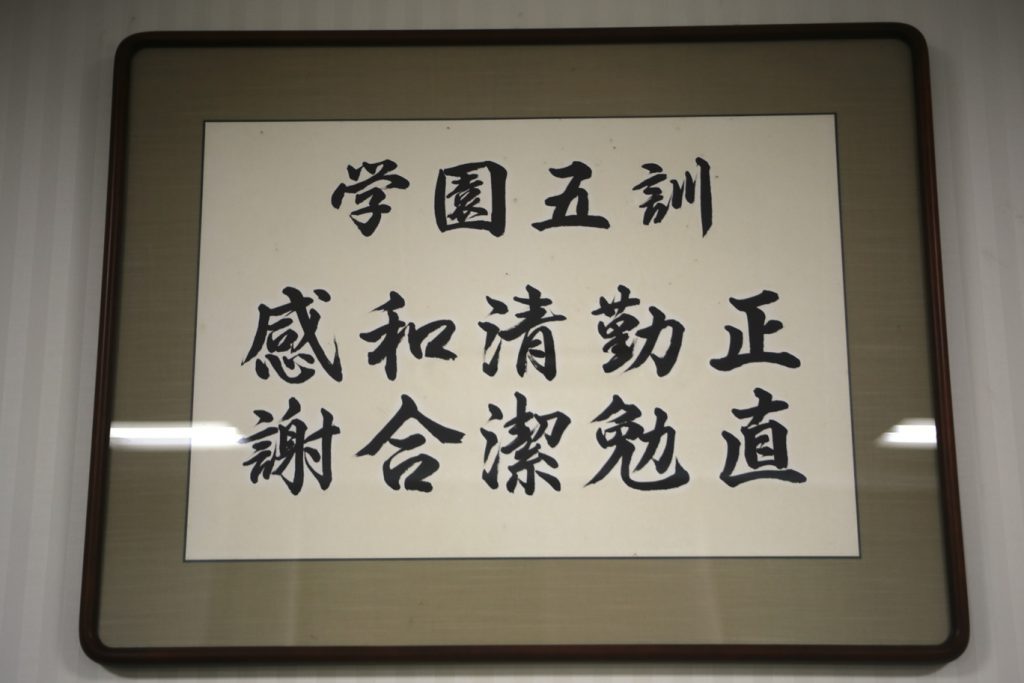 学園五訓
正直
勤勉
清潔
和合
感謝